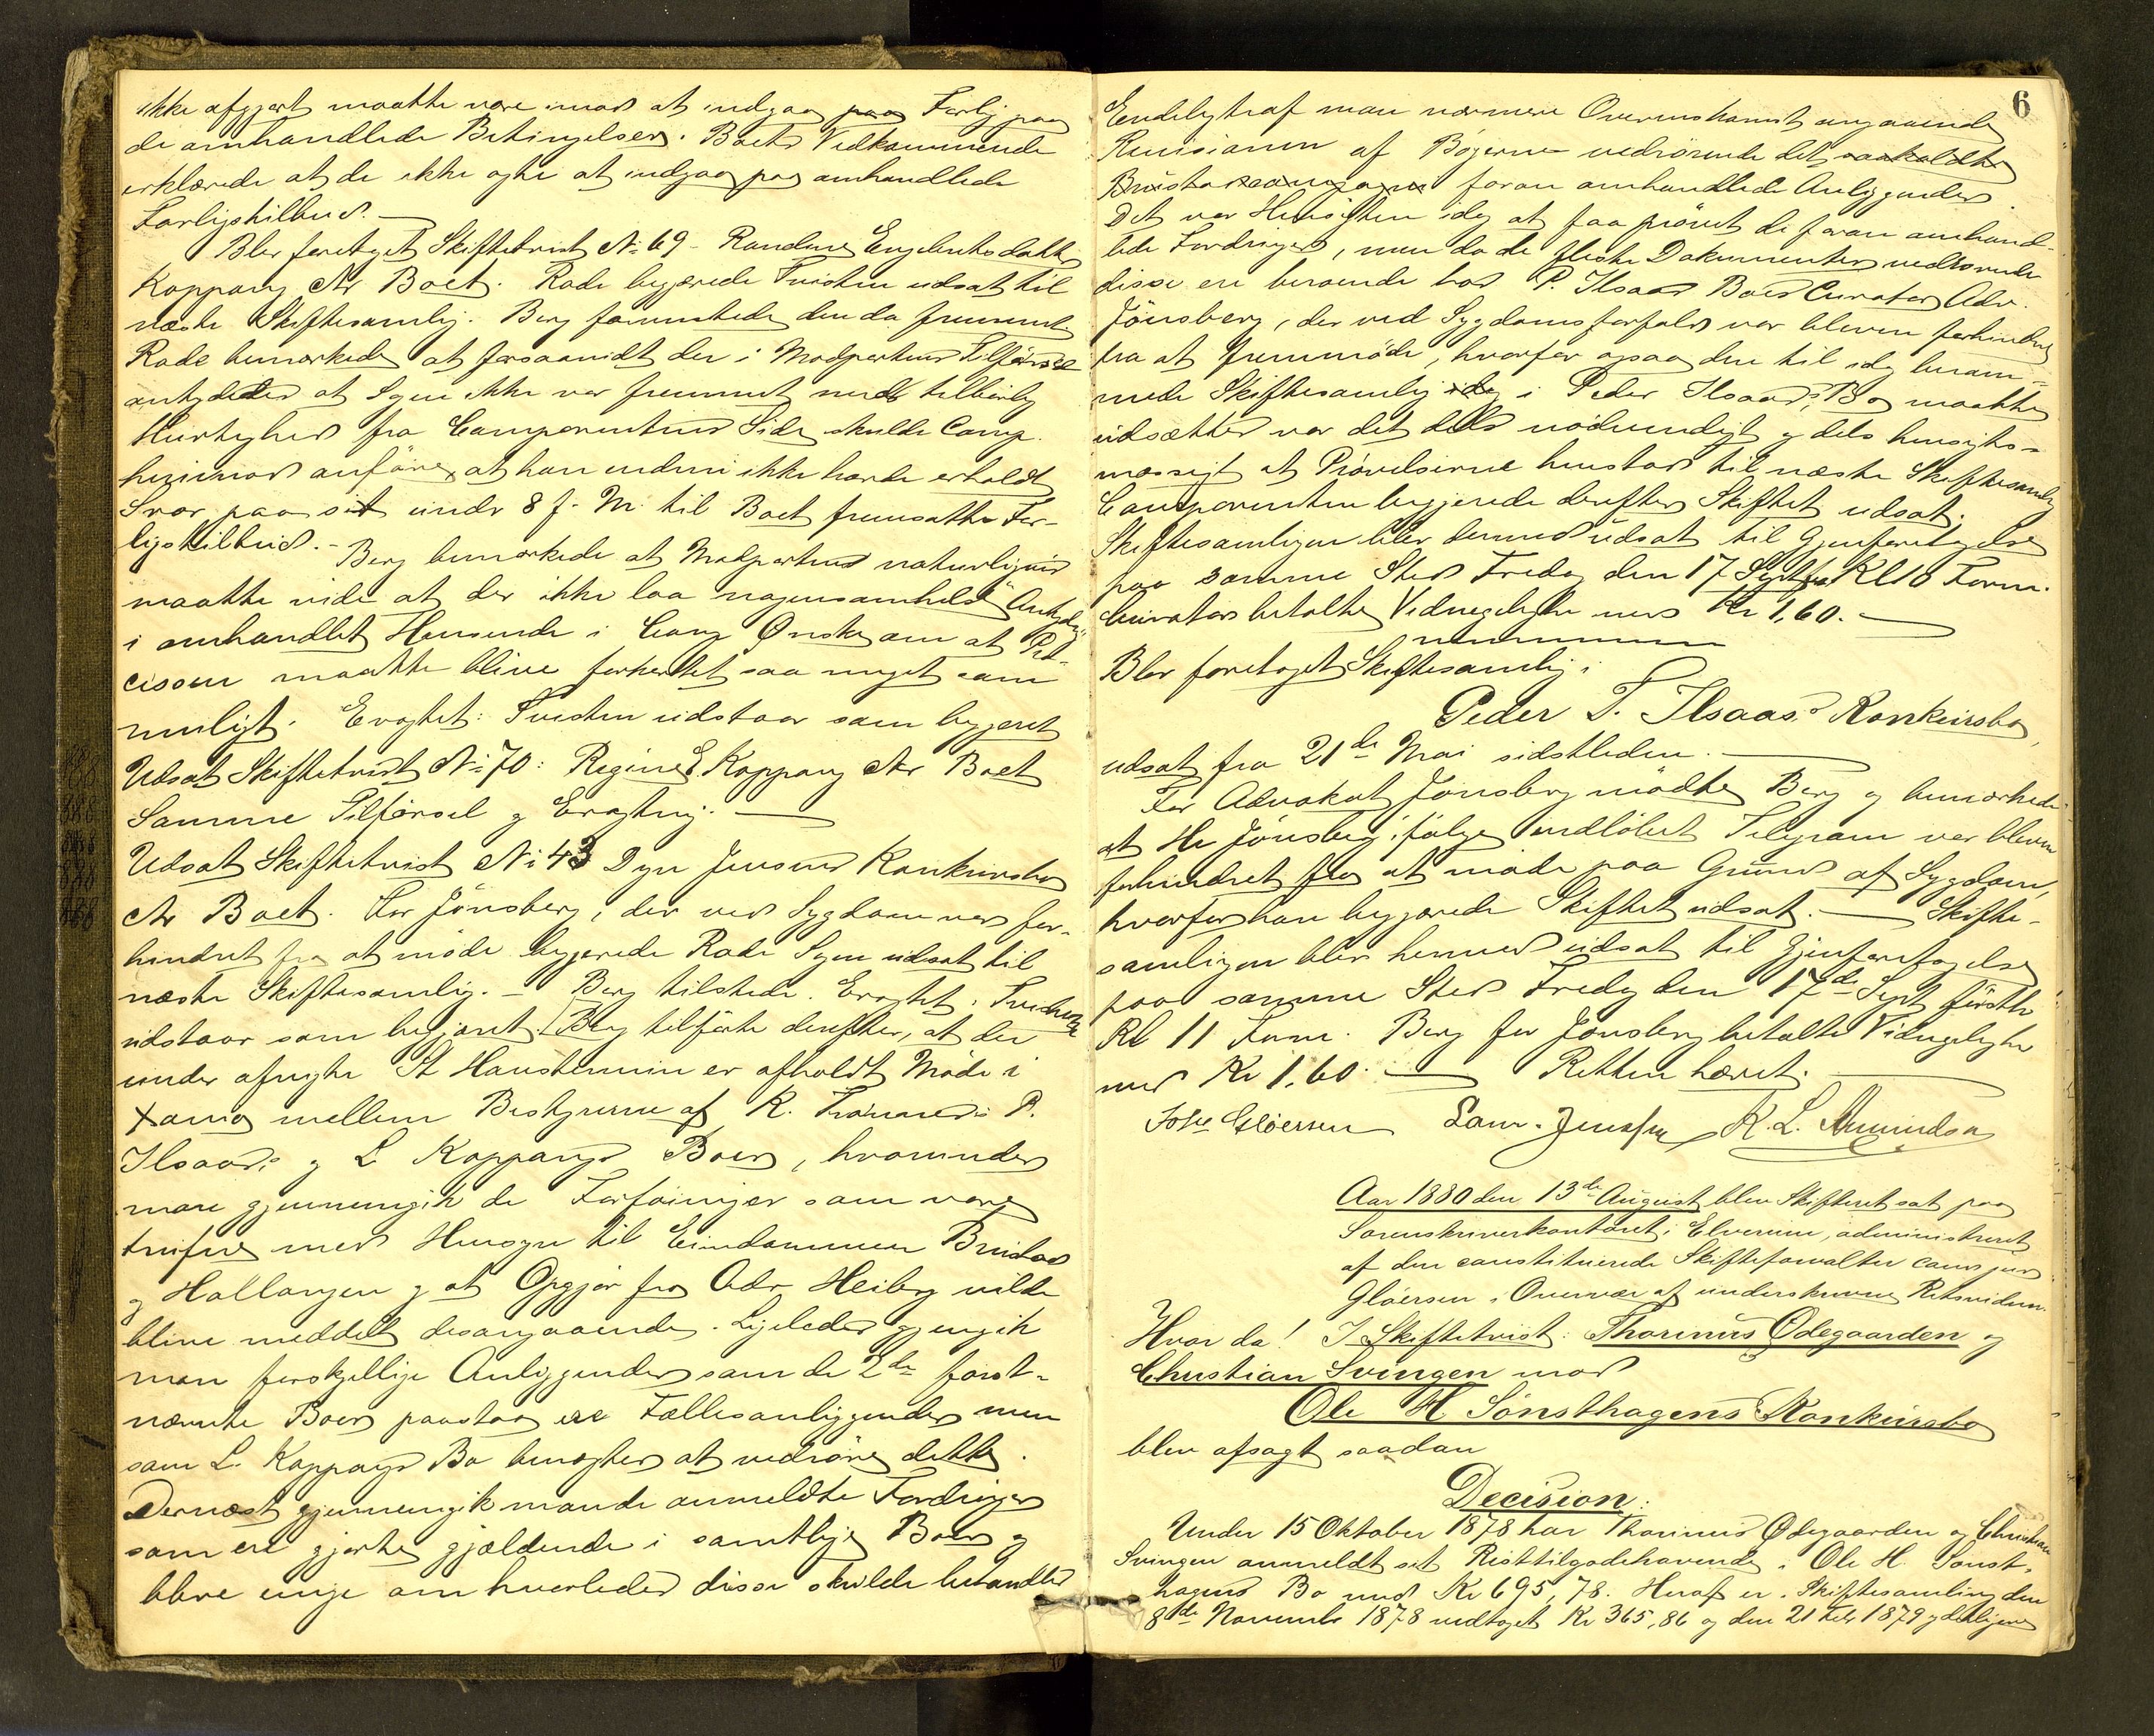 ikke afgjort maatte være imod at indgaa paa Forlig paa
de omhandlede Betingelser. Boets Vedkommende
erklærede at de ikke agte at indgaa paa omhandlede
Forligstilbud.
Blev foretaget Skiftetvist No 69 - Randine Engebretsdatter
Koppang ctr Boet. Rode begjærede Tvisten udsat til
næste Skiftesamling. Berg forventede den da fremmet
Rode bemærkede at forsaavidt der i Modpartens Tilførsel
antydedes at Sagen ikke var fremmet med tilbørlig
Hurtighed fra Comparentens Side skulde Comp.
herimod anføre, at han endnu ikke havde erholdt
Svar paa sit under 8 f. M. til Boet fremsatte For-
ligstilbud. - Berg bemærkede at Modparten naturligvis
maatte vide at der ikke laa nogensomhelst "Antydn."
i omhandlet Henseende i Comp Ønske om at Pro-
cessen maatte blive forkortet saa meget som
muligt. Eragtet: Tvisten udstaar som begjæret
Udsat Skiftetvist No 70: Regine E. Koppang ctr Boet
Samme Tilførsel og Eragtning.
Udsat Skiftetvist No 43 Dyre Jensens Konkursbo
ctr Boet. For Jönsberg, der ved Sygdom var for-
hindret fra at møde begjærede Rode Sagen udsat til
næste Skiftesamling. - Berg tilstede. Eragtet: Tvisten
udstaar som begjæret. Berg tilførte derefter, at der
under afvigte St Hanstermin er afholdt Møde i
mellem Bestyrerne af K. P.
Ilsaas's og L Koppangs Boer, hvorunder
man gjennemgik de Forføininger som vare
trufne med Hensyn til Eiendommen
og Hallangen og at Opgjør fra Adv. Heiberg vilde
blive meddelt desangaaende. Ligeledes gjengik
man forskjellige Anliggender som de 2de først-
nævnte Boer paastaa ere Fællesanliggender men
som L. Koppangs Bo benægter at vedrøre dette.
Dernæst gjennemgik man de anmeldte Fordringer
som ere gjorte gjældende i samtlige Boer og
blive enige om hvorledes disse skulde behandles
6
Endelig traf man nærmere Overenskomst angaaende
Revisionen af Bøgerne vedrørende det saakaldte
foran omhandlede Anliggender.
Det var Hensigten idag at faa prøvet de foran omhand-
lede Fordringer, men da de fleste Dokumenter vedrørende
disse ere beroende hos P. Ilsaas Boes Curator Adv.
Jönsberg, der ved Sygdomsforfald var bleven forhindret
fra at fremmøde, hvorfor ogsaa den til idag beram-
mede Skiftesamling idag i Peder Ilsaas's Bo maatte
udsættes var det dels nødvendigt og dels hensigts-
mæssigt at Prøvelserne henstod til næste Skiftesamling
Comparenten begjærede derefter Skiftet udsat.
Skiftesamlingen blev dermed udsat til Gjenforetagelse
paa samme Sted Fredag den 17 Septbr Kl 10 Form.
Curator betalte Vidnegodtgj. med Kr 1,60.
Blev foretaget Skiftesamling i
Peder T. Ilsaas's Konkursbo,
udsat fra 21de Mai sidstleden.
For Advokat Jönsberg mødte Berg og bemærkede
at Hr Jönsberg ifølge indløbet Telegram var bleven
forhindret fra at møde paa Grund af Sygdom,
hvorfor han begjærede Skiftet udsat. - Skifte-
samlingen blev hermed udsat til Gjenforetagelse
paa samme Sted Fredag den 17de Sept førstk
Kl 11 Form. Berg for Jönsberg betalte Vidnegodtgj.
med Kr 1.60. Retten hævet.
Gløersen Laur. Jensen K. L. Amundsen
Aar 1880 den 13de August blev Skifteret sat paa
Sorenskriverkontoret i Elverum, administreret
af den constituerede Skifteforvalter cand. jur.
Gløersen i Overvær af underskrevne Retsvidner.
Hvor da! I Skiftetvist: Thorinus Ødegaarden og
Christian Svingen mod
Ole H Sönsthagens Konkursbo
blev afsagt saadan
Decision:
Under 15 Oktober 1878 har Thorinus Ødegaarden og Christian
Svingen anmeldt sit Resttilgodehavende i Ole H. Sönst-
hagens Bo med Kr 695,78. Heraf er i Skiftesamling den
8de November 1878 vedtaget Kr 365,86 og den 21 Febr 1879 yderligere